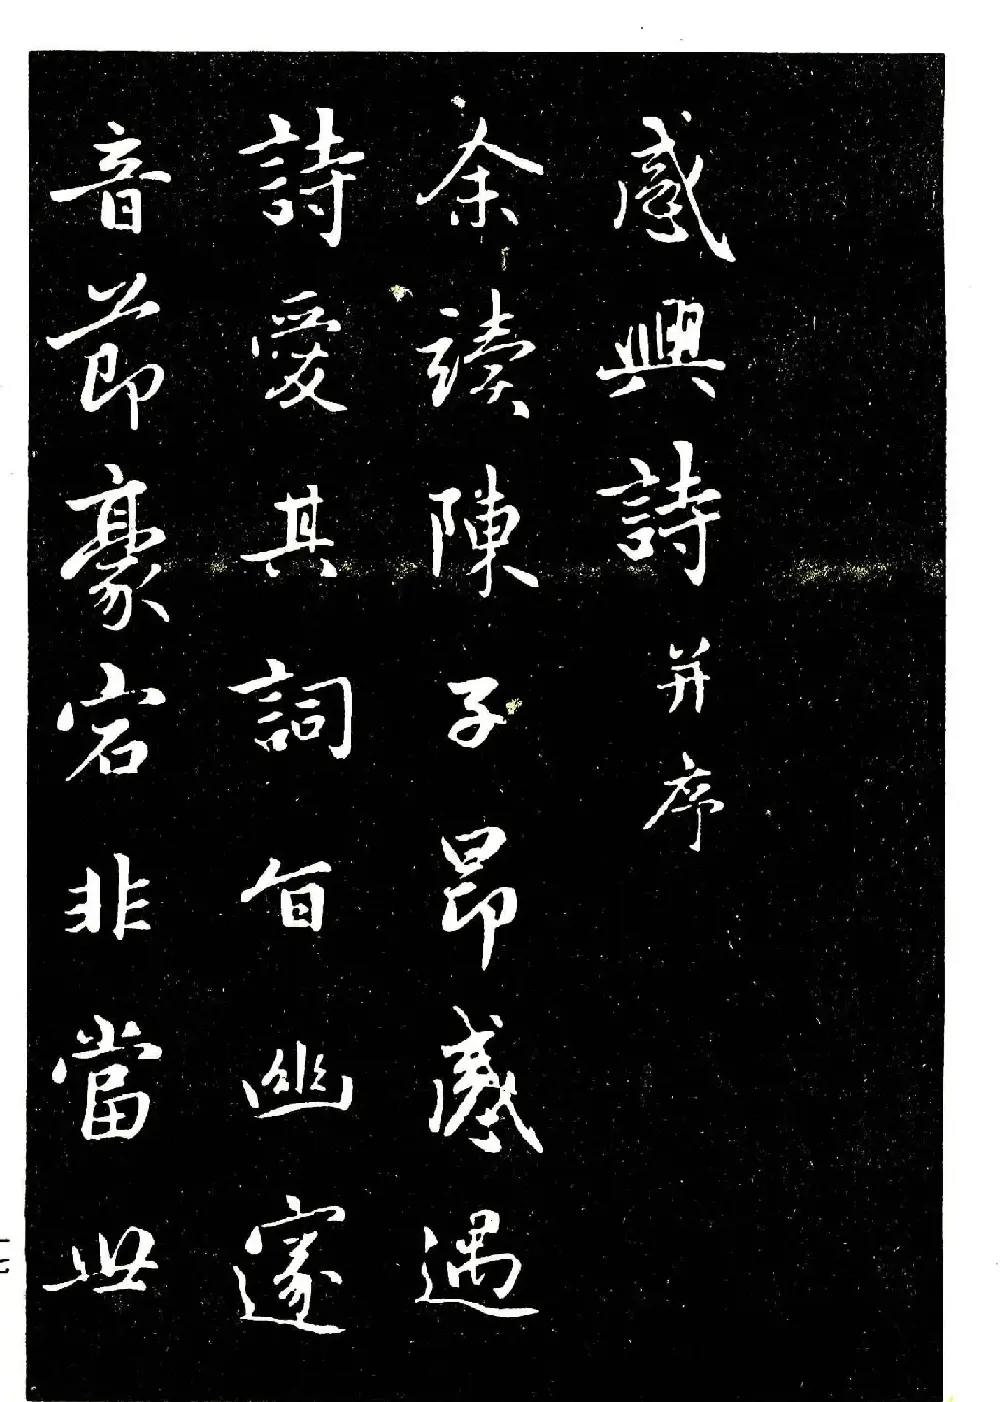 感興詩并序
余讀陳子昂感遇
詩愛其詞旨幽邃
音節豪宕非當世